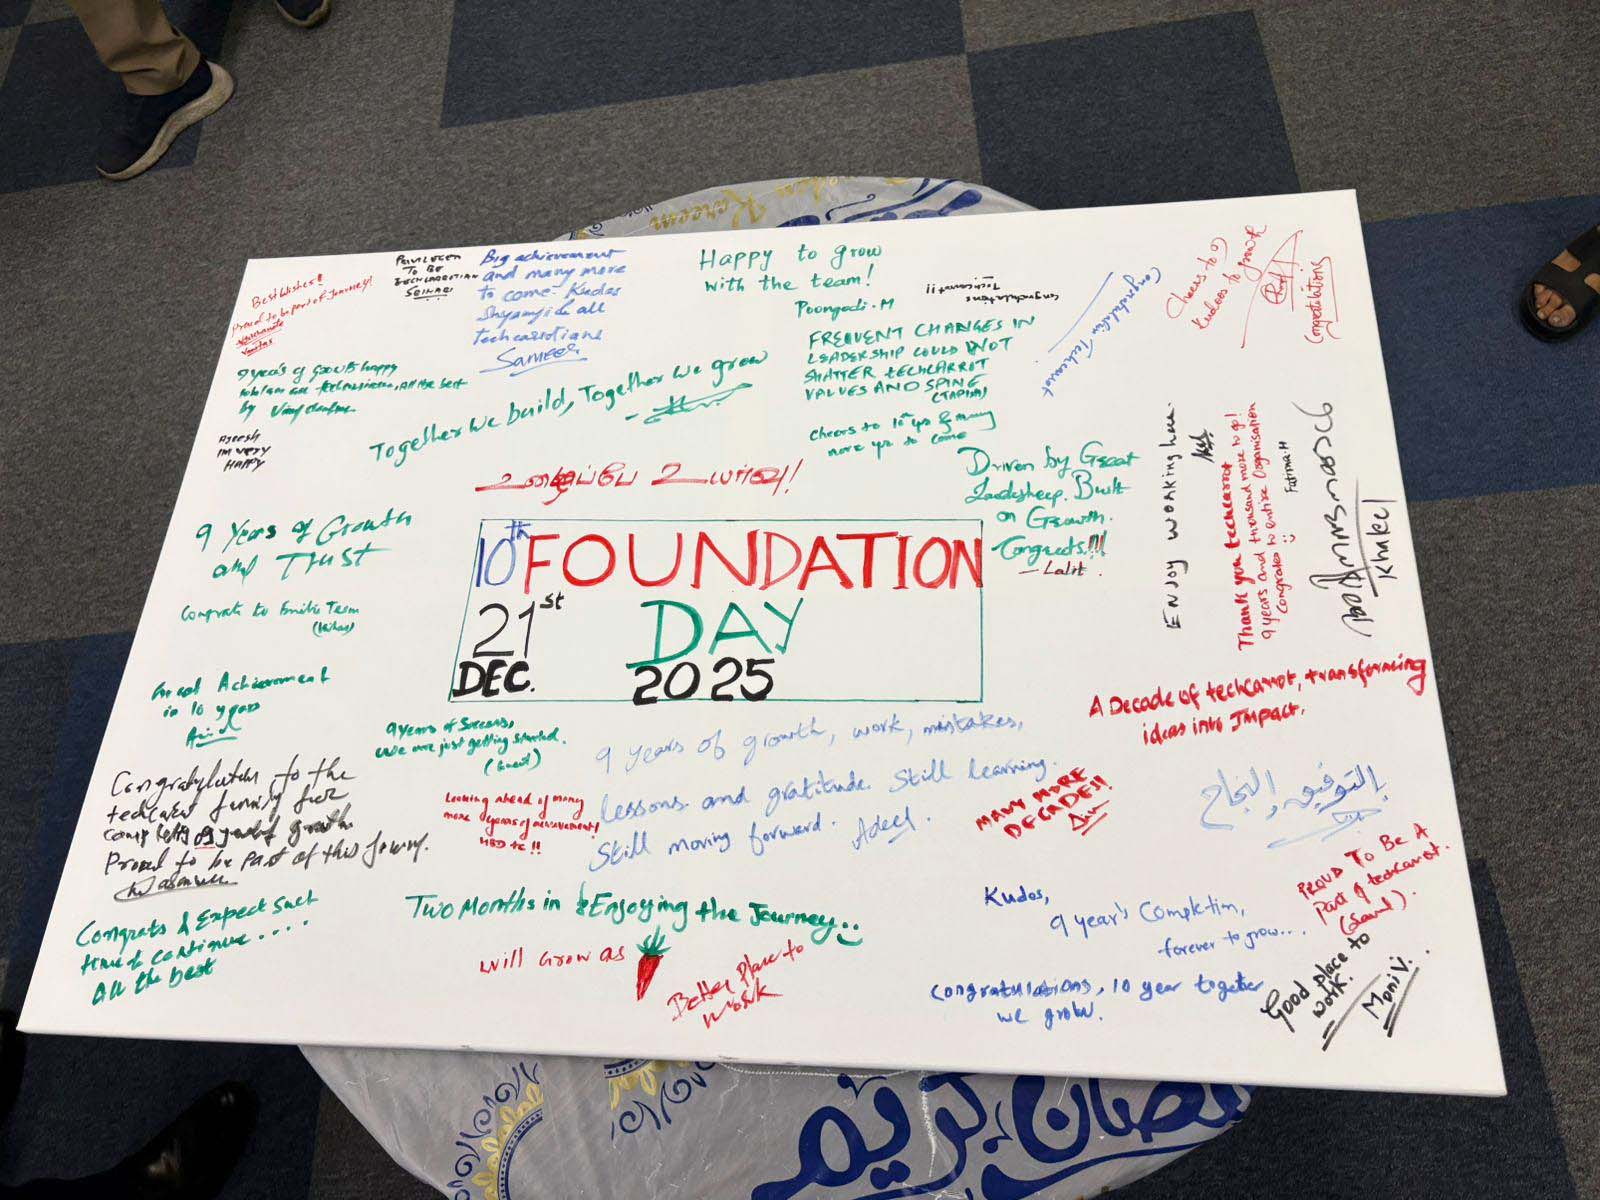 Best Wishes!
Proud to be part of Journey!
PRIVILEGED
TO BE
TECHCARROTIAN
Big achievement
and many more
to come. Kudos
Shyamji & all
techcarrotians
Sameer
Happy to grow
with the team!
Poongodi.M
Congratulations
Techcarrot!!
Congratulation Techcarrot
Cheers to 9
Kudoos to grow
Congratulations
9 years of growth happy
by
AJEESH
IM VERY
HAPPY
Together We build, Together We grow
FREQUENT CHANGES IN
LEADERSHIP COULD NOT
SHATTER TECHCARROT
VALUES AND SPINE
(TAPIM)
Cheers to 10 yrs & many
more yrs to come
உழைப்பே உயர்வு!
Driven by Great
Leadsheep. Built
on Growth.
Congrats!!!
- Lalit.
Enjoy working here.
Thank you techcarrot
9 years and thousand more to go!
Congrates to entire Organisation
Fatima.H
Khukel
9 Years of Growth
and Trust
Congrats to Entire Team
10th FOUNDATION
21st DAY
DEC. 2025
Great Achievement
in 10 years
9 Years of Success,
we are just getting started.
A Decade of techcarrot, transforming
ideas into Impact.
9 years of growth, work, mistakes,
lessons and gratitude. Still learning.
Still moving forward. Adeel.
MANY MORE
DECADES!!
بالتوفيق والنجاح
Congratulation to the
techcarrot family for
completing of growth
Proud to be part of this Journey.
Looking ahead of many
more years of achievement!
HBD tc!!
PROUD TO BE A
Part of techcarrot.
Congrats & Expect such
time to continue....
All the best
Two Months in & Enjoying the Journey..
will Grow as
Better Place to
Work
Kudos,
9 year's Completion,
forever to grow...
Congratulations, 10 year together
we grow.
Good place to
work.
Mani V.
رمضان كريم
Kareem